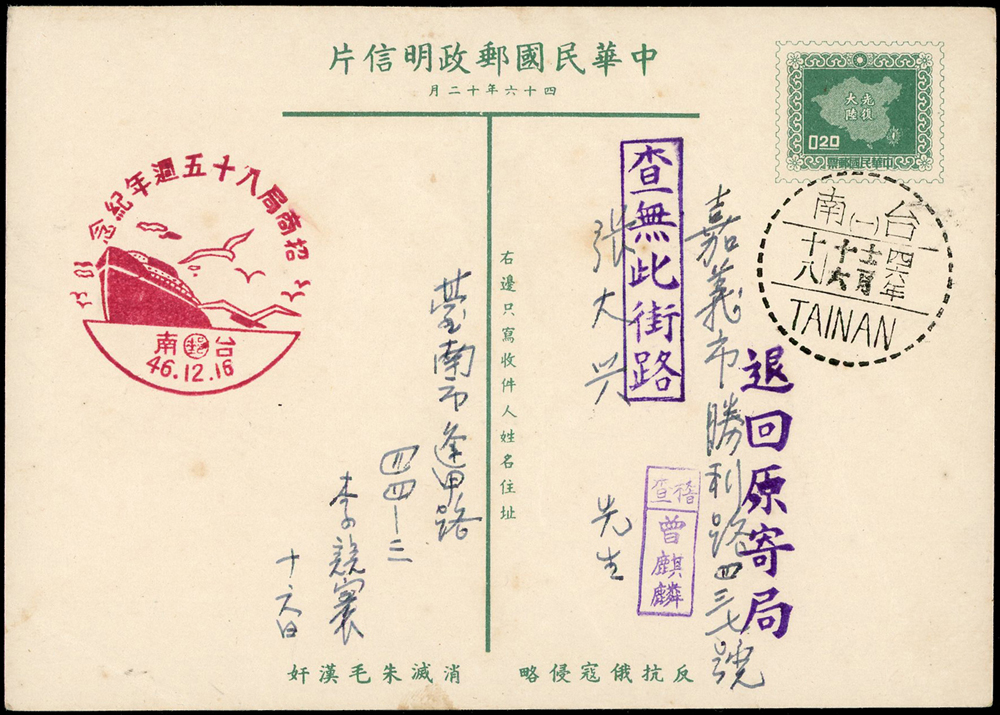 中華民國郵政明信片
四十六年十二月
光復
大陸
0.20
中華民國郵票
台南(一)
四六年
十二月
十六
十八
TAINAN
招商局八十五週年紀念
台郵南
46.12.16
查無此街路
退回原寄局
嘉義市勝利路四三七號
張大兴 先生
稽查
曾麒麟
右邊只寫收件人姓名住址
臺南市逢甲路
四四-三
李競寰
十六日
反抗俄寇侵略
消滅朱毛漢奸